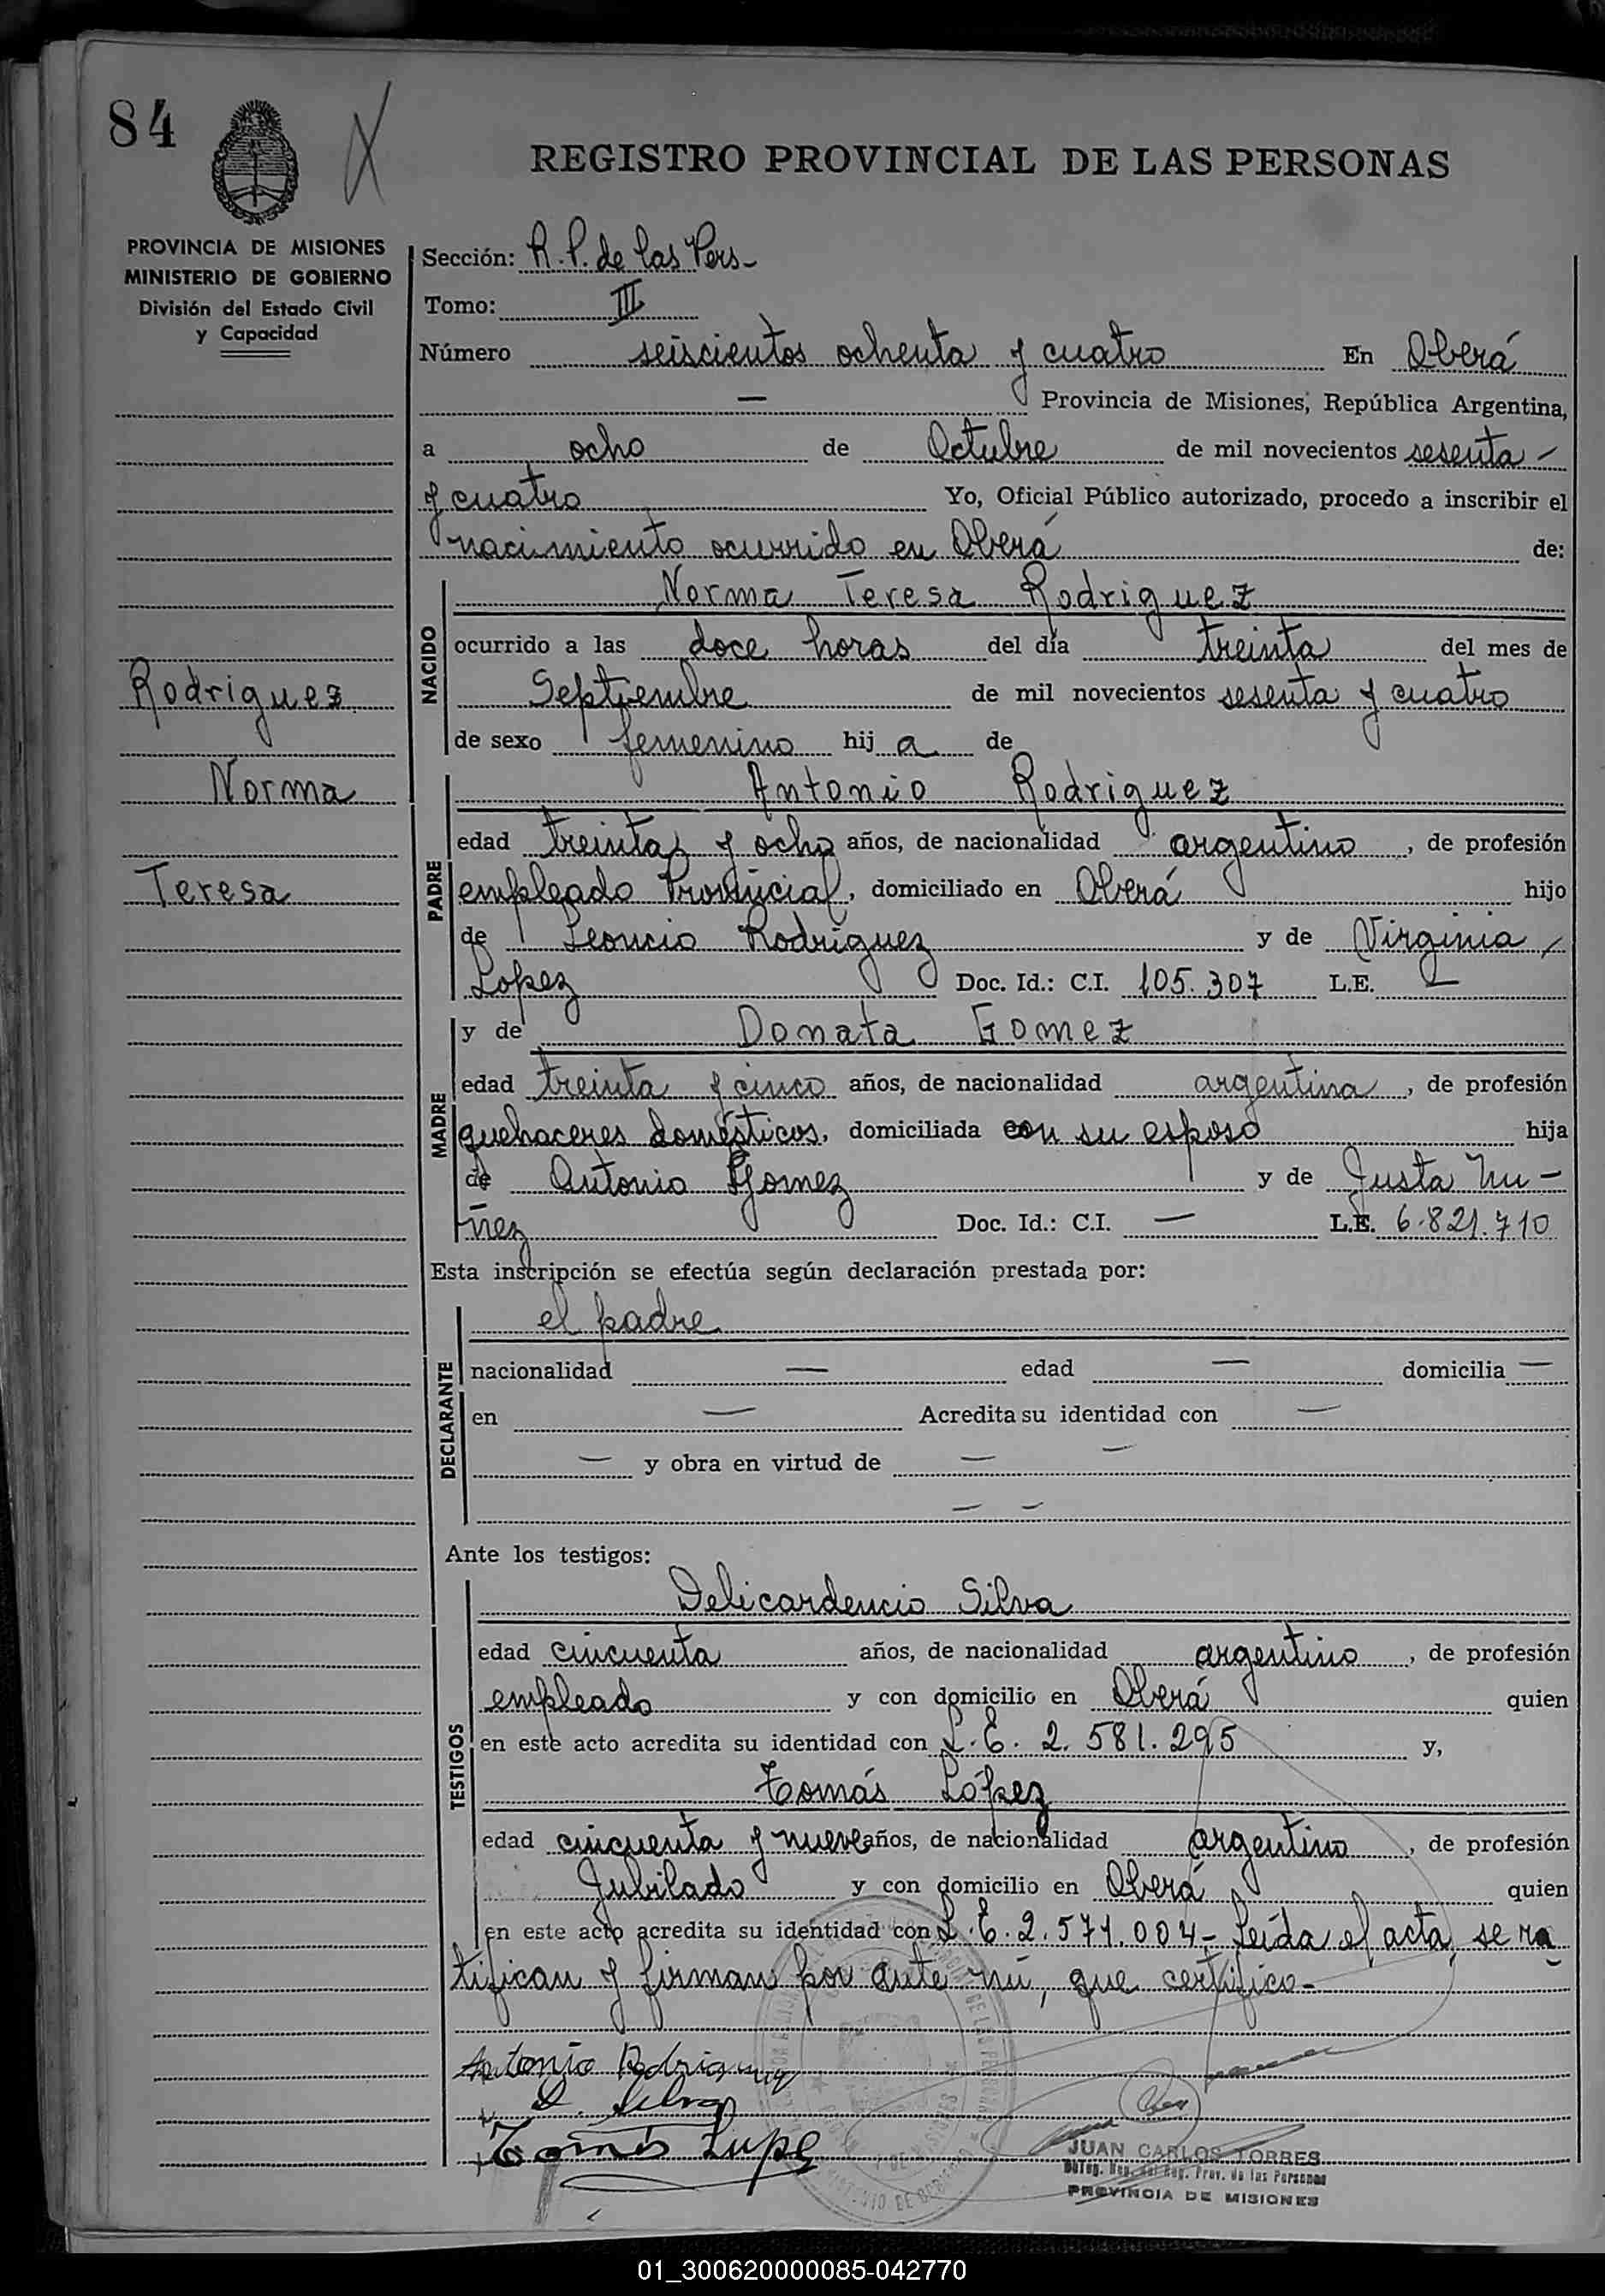 84
REGISTRO PROVINCIAL DE LAS PERSONAS
PROVINCIA DE MISIONES
MINISTERIO DE GOBIERNO
División del Estado Civil
y Capacidad
Rodriguez
Norma
Teresa
Sección: R.P. de las Pers-
Tomo: III
Número seiscientos ochenta y cuatro En Oberá
— Provincia de Misiones, República Argentina,
a ocho de Octubre de mil novecientos sesenta -
y cuatro Yo, Oficial Público autorizado, procedo a inscribir el
nacimiento ocurrido en Oberá de:
NACIDO
Norma Teresa Rodriguez
ocurrido a las doce horas del día treinta del mes de
Septiembre de mil novecientos sesenta y cuatro
de sexo femenino hij a de
PADRE
Antonio Rodriguez
edad treinta y ocho años, de nacionalidad argentino, de profesión
empleado Provincial, domiciliado en Oberá hijo
de Leoncio Rodriguez y de Virginia
Lopez Doc. Id.: C.I. 105.307 L.E. —
MADRE
y de Donata Gomez
edad treinta y cinco años, de nacionalidad argentina, de profesión
quehaceres domésticos, domiciliada con su esposo hija
de Antonio Gomez y de Justa Nu-
ñez Doc. Id.: C.I. — L.E. 6.821.710
Esta inscripción se efectúa según declaración prestada por:
DECLARANTE
el padre
nacionalidad — edad — domicilia —
en — Acredita su identidad con —
— y obra en virtud de — —
— —
Ante los testigos:
TESTIGOS
Delicardencio Silva
edad cincuenta años, de nacionalidad argentino, de profesión
empleado y con domicilio en Oberá quien
en este acto acredita su identidad con L.E. 2.581.295 y,
Tomás López
edad cincuenta y nueve años, de nacionalidad argentino, de profesión
Jubilado y con domicilio en Oberá quien
en este acto acredita su identidad con L.E. 2.571.004- Leída el acta, se ra
tifican y firman por ante mí, que certifico-
Antonio Rodriguez
D. Silva
Tomás Lupez
JUAN CARLOS TORRES
Reg. Prov. de las Personas
PROVINCIA DE MISIONES
01_300620000085-042770